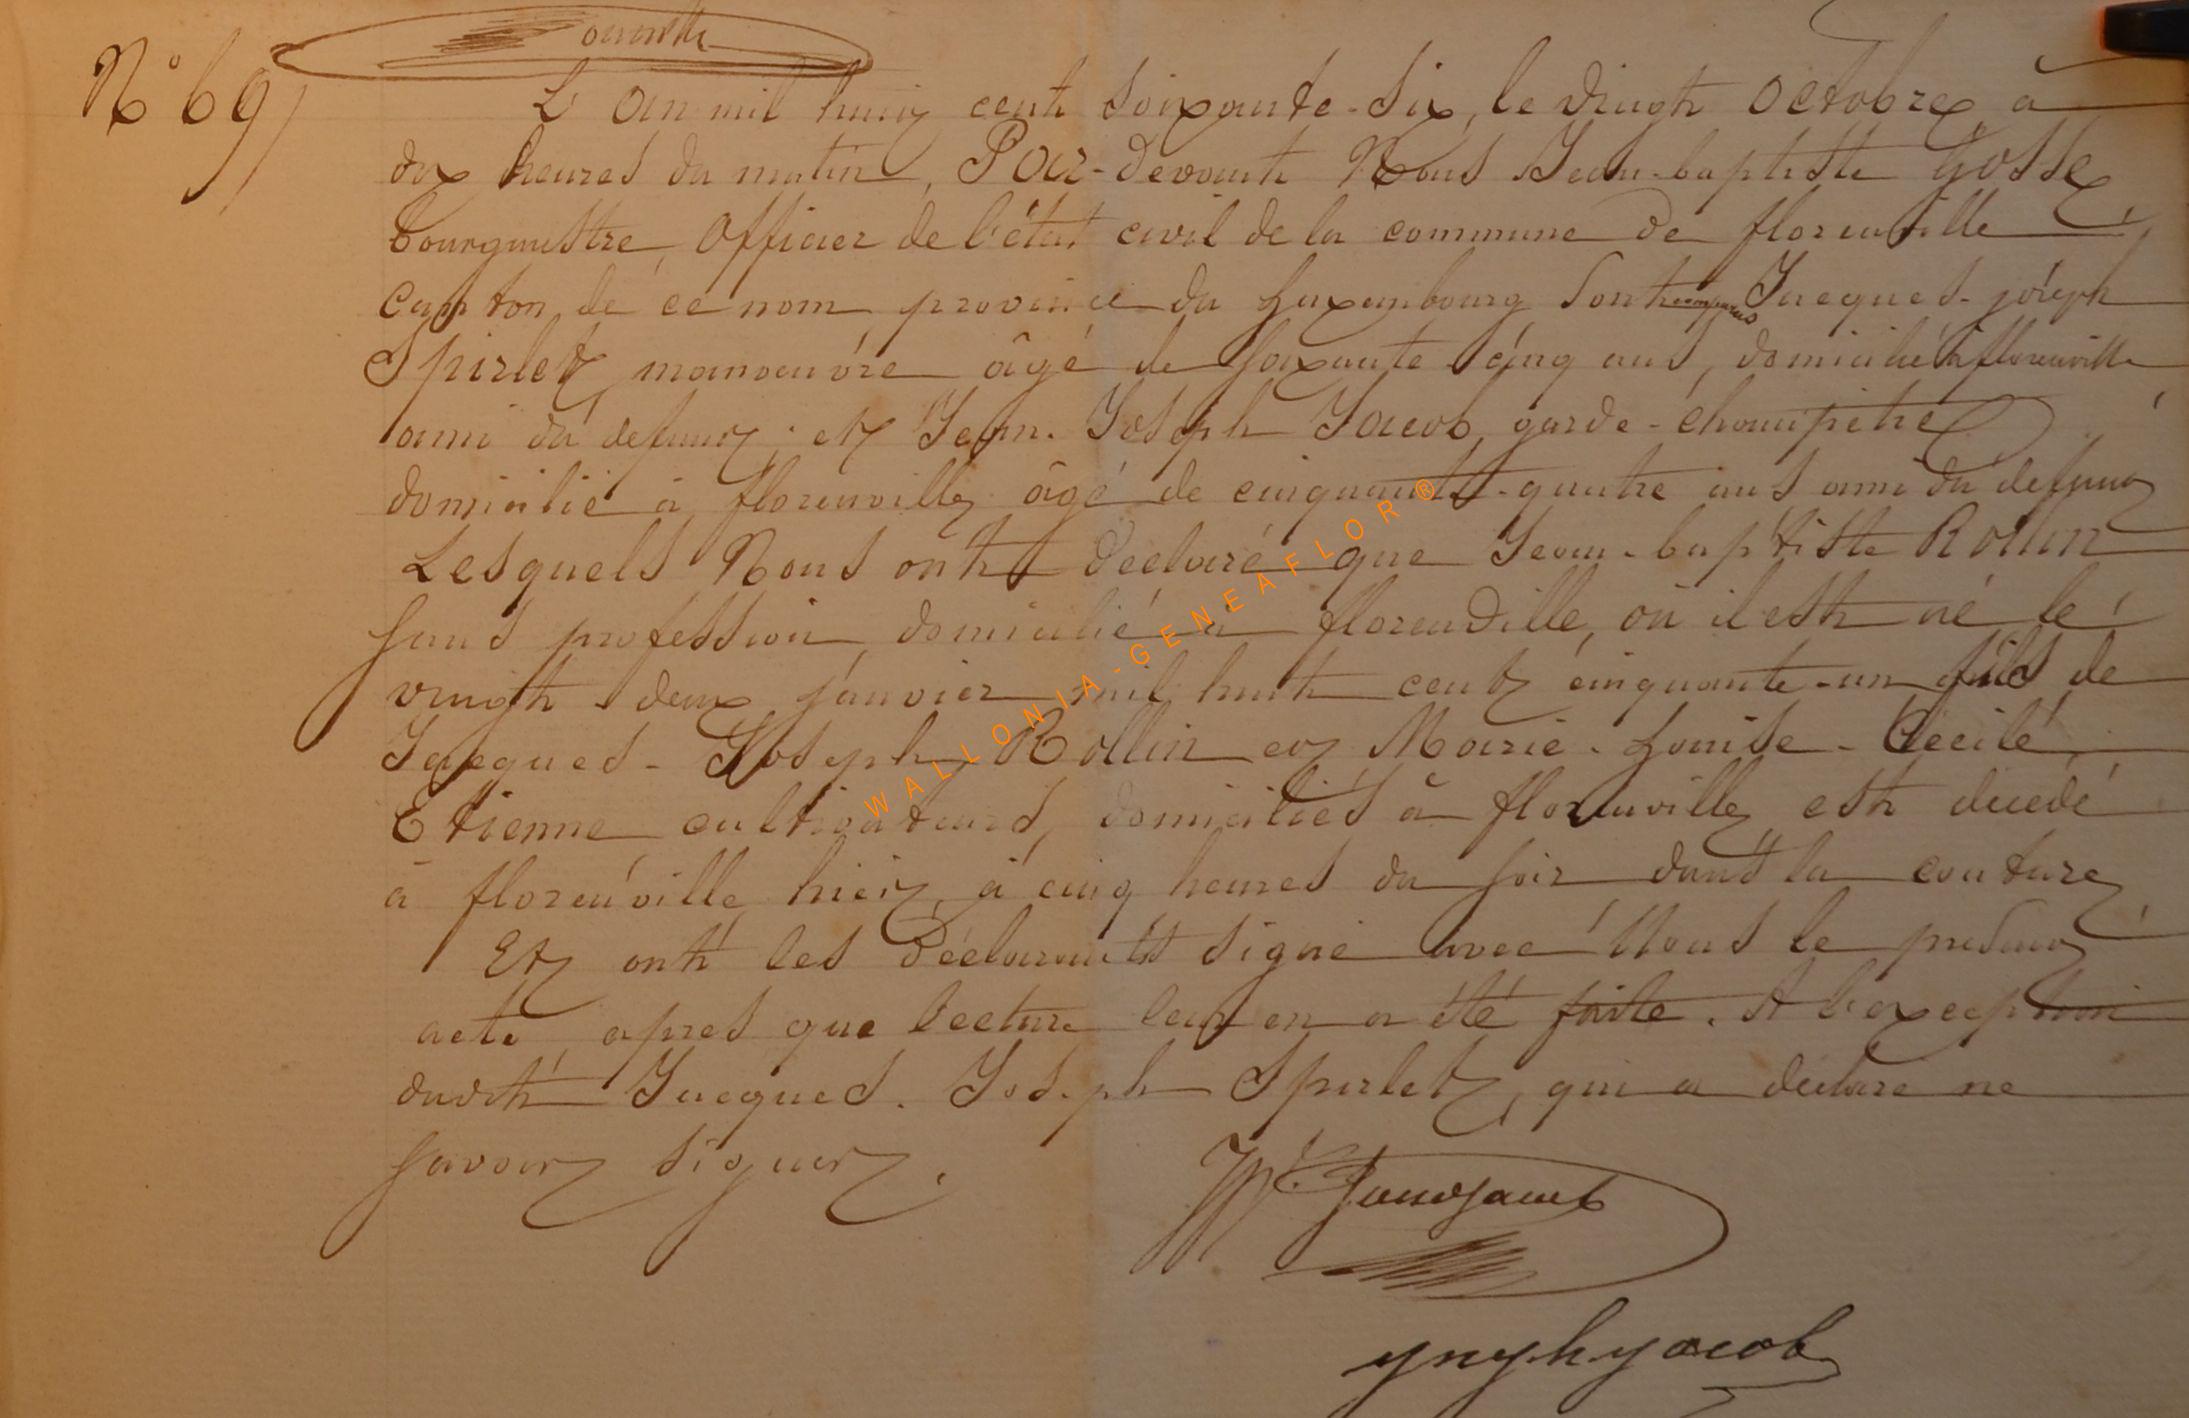 N° 69
L'an mil huit cent soixante-six, le vingt octobre, à
dix heures du matin, Par-devant Nous Jean-baptiste Gosse,
bourgmestre, Officier de l'état civil de la commune de florenville,
canton de ce nom province du Luxembourg Sont comparus Jacques-joseph
Spirlet, manoeuvre âgé de soixante cinq ans, domicilié à florenville
ami du defunt; et Jean-Joseph Jacob, garde-champêtre
domicilié à florenville âgé de cinquante-quatre ans ami du defunt
Lesquels Nous ont déclaré que Jean-baptiste Rollin
sans profession, domicilié à florenville, où il est né le
vingt deux janvier mil huit cent cinquante-un fils de
Jacques-Joseph Rollin et Marie-Louise-Cécile
Etienne cultivateurs, domiciliés à florenville, est décédé
à florenville hier, à cinq heures du soir dans la couture,
Et ont les Déclarants signé avec Nous le present
acte après que lecture leur en a été faite. A l'exception
dudit Jacques-Joseph Spirlet, qui a déclaré ne
savoir signer.
WALLONIA-GENEAFLOR®